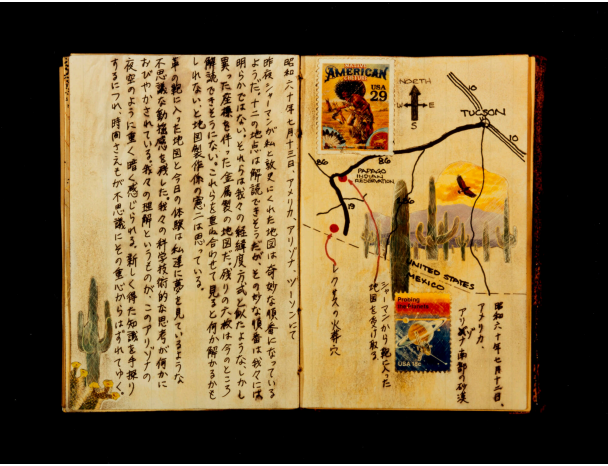 昭和六十年七月十三日、アメリカ、アリゾナ、ツーソンにて
昨夜シャーマンが私と敏史にくれた地図は奇妙な順番になっている
ようだ。十二の地点は解読できそうだが、その妙な順番は我々には
明らかではない。それらは我々の経緯度方式と似たような、しかし
異った座標を伴った金属製の地図だ。残りの大板は今のところ
解読できそうにない。これらを重ね合わせて見ると何か解かるかも
しれない、と地図製作係の憲二は思っている。
革の鞄に入った地図と今日の体験は私達に夢を見ているような
不思議な動揺感を残した。我々の科学技術的な思考が何かに
おびやかされている。我々の理解というものが、このアリゾナの
夜空のように重く暗く感じられる。新しく得た知識を手探り
するにつれ、時間さえもが不思議にその重心からはずれてゆく。
AMERICAN
USA
29
NORTH
W
E
S
10
TUCSON
10
86
86
PAPAGO
INDIAN
RESERVATION
19
UNITED STATES
MEXICO
シャーマンから鞄に入った
地図を受け取る
の火葬穴
Probing
USA 18c
昭和六十年七月十二日、
アメリカ、
アリゾナ南部の砂漠